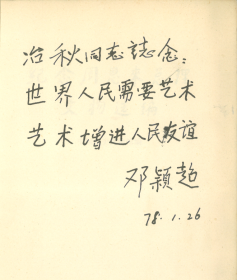 冶秋同志誌念：
世界人民需要艺术
艺术增进人民友谊
邓颖超
78.1.26